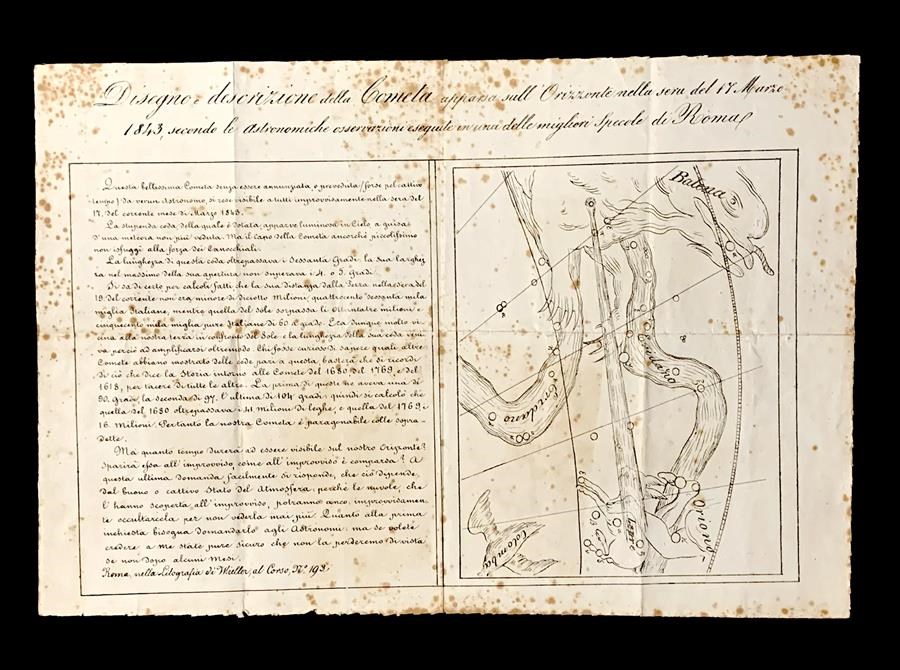 Disegno e descrizione della Cometa apparsa sull' Orizzonte nella sera del 17. Marzo
1843, secondo le Astronomiche osservazioni eseguite in una delle migliori Specole di Roma
Questa bellissima Cometa senza essere annunziata, o preveduta (forse pel cattivo
tempo) da verun Astronomo, si rese visibile a tutti improvvisamente nella sera del
17. del corrente mese di Marzo 1843.
La stupenda coda, della quale è dotata, apparve luminosa in Cielo a guisa
d'una meteora non più veduta. Ma il capo della Cometa ancorchè piccolissimo
non isfuggì alla forza dei Canocchiali.
La lunghezza di questa coda oltrepassava i Sessanta Gradi: la sua larghez
za nel massimo della sua apertura non superava i 4. o 5. Gradi.
Si sa di certo per calcoli fatti che la sua distanza dalla Terra nella sera del
19. del corrente non era minore di diciotto Milioni, quattrocento sessanta mila
miglia Italiane, mentre quella del sole sorpassa li Ottantatre milioni e
cinquecento mila miglia pure Italiane di 60 a grado. Era dunque molto vi
cina alla nostra terra in confronto del Sole e la lunghezza della sua coda veni
va perciò ad amplificarsi oltremodo. Chi fosse curioso di sapere quali altre
Comete abbiano mostrato delle code pari a questa, basterà che si ricordi
di ciò che dice la Storia intorno alle Comete del 1680. del 1769, e del
1618, per tacere di tutte le altre. La prima di queste ne aveva una di
90. gradi, la seconda di 97. l'ultima di 104 gradi, quindi si calcolò che
quella del 1680 oltrepassava 41 Milioni di leghe, e quella del 1769 i
16. Milioni. Pertanto la nostra Cometa è paragonabile colle sopra-
dette.
Ma quanto tempo durerà ad essere visibile sul nostro Orizzonte?
Sparirà essa all'improvviso come all'improvviso è comparsa? A
questa ultima domanda facilmente si risponde, che ciò dipende
dal buono o cattivo Stato del Atmosfera, perchè le nuvole, che
l'hanno scoperta all'improvviso, potranno anco improvvisamen
te occultarcela per non vederla mai più. Quanto alla prima
inchiesta bisogna domandarlo agli Astronomi: ma se volete
credere a me state pure sicuro che non la perderemo di vista
se non dopo alcuni Mesi.
Roma, nella Litografia di Wieller, al Corso, N.º 193.
Balena
Eridano
Eridano
Orione
Lepre
Colomba